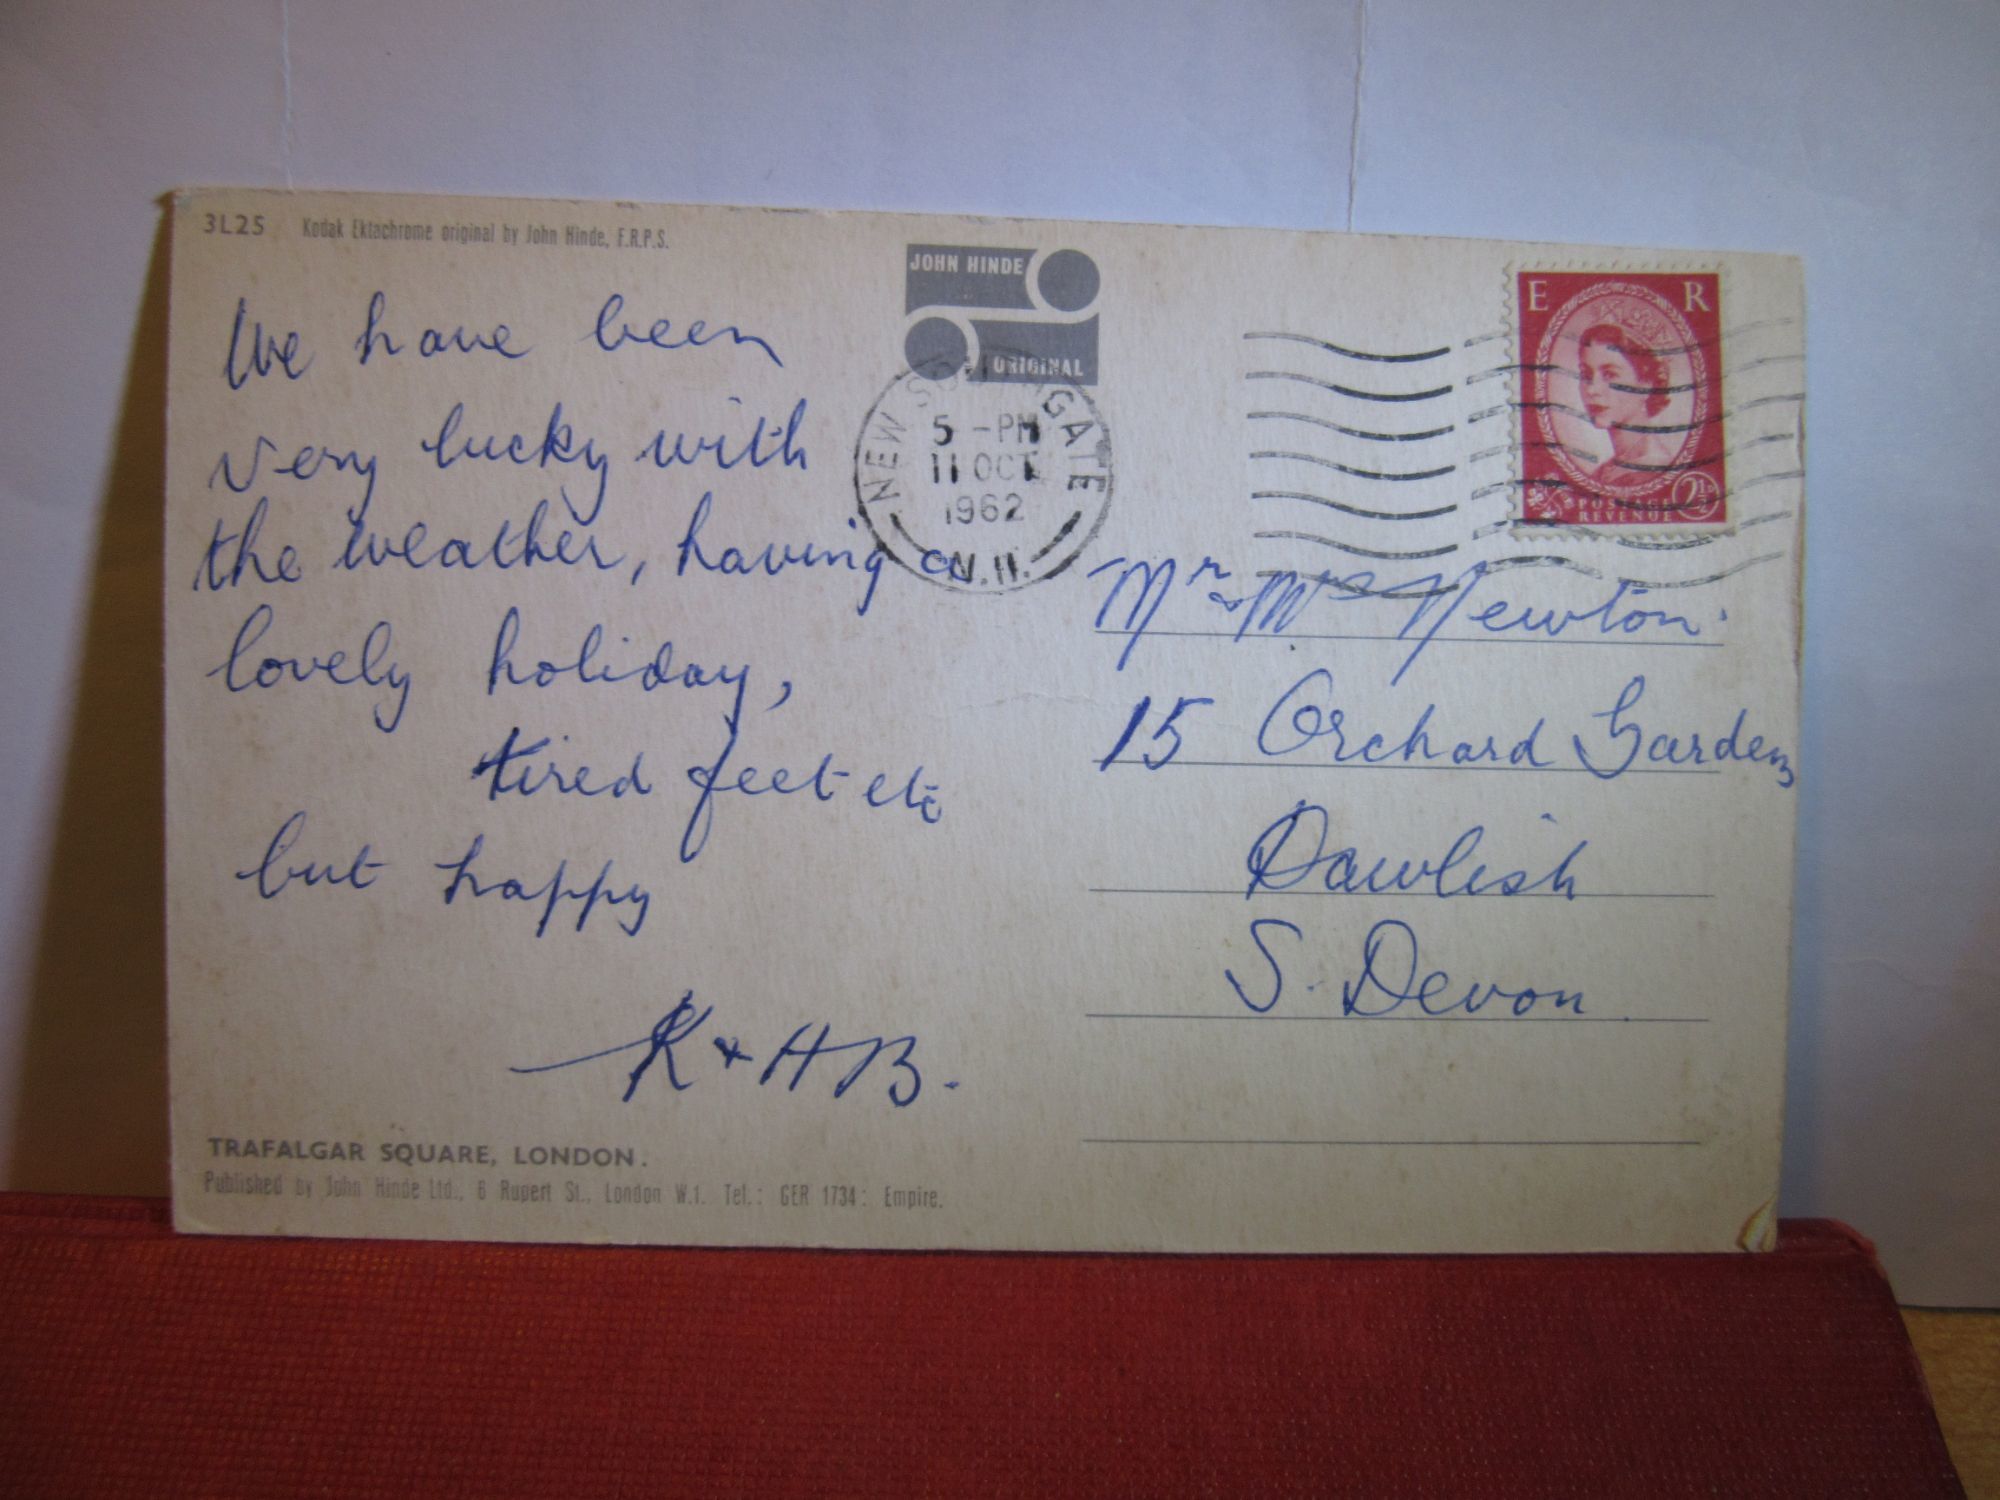 3L25 Kodak Ektachrome original by John Hinde, F.R.P.S.
JOHN HINDE
ORIGINAL
We have been
very lucky with
the weather, having a
lovely holiday,
tired feet etc
but happy
K + H B.
TRAFALGAR SQUARE, LONDON.
Published by John Hinde Ltd., 6 Rupert St., London W.1. Tel.: GER 1734: Empire.
NEW SOUTHGATE
5 - PM
11 OCT
1962
N.11.
E R
POSTAGE 2½
REVENUE
Mr & Mrs Newton.
15 Orchard Gardens
Dawlish
S. Devon.